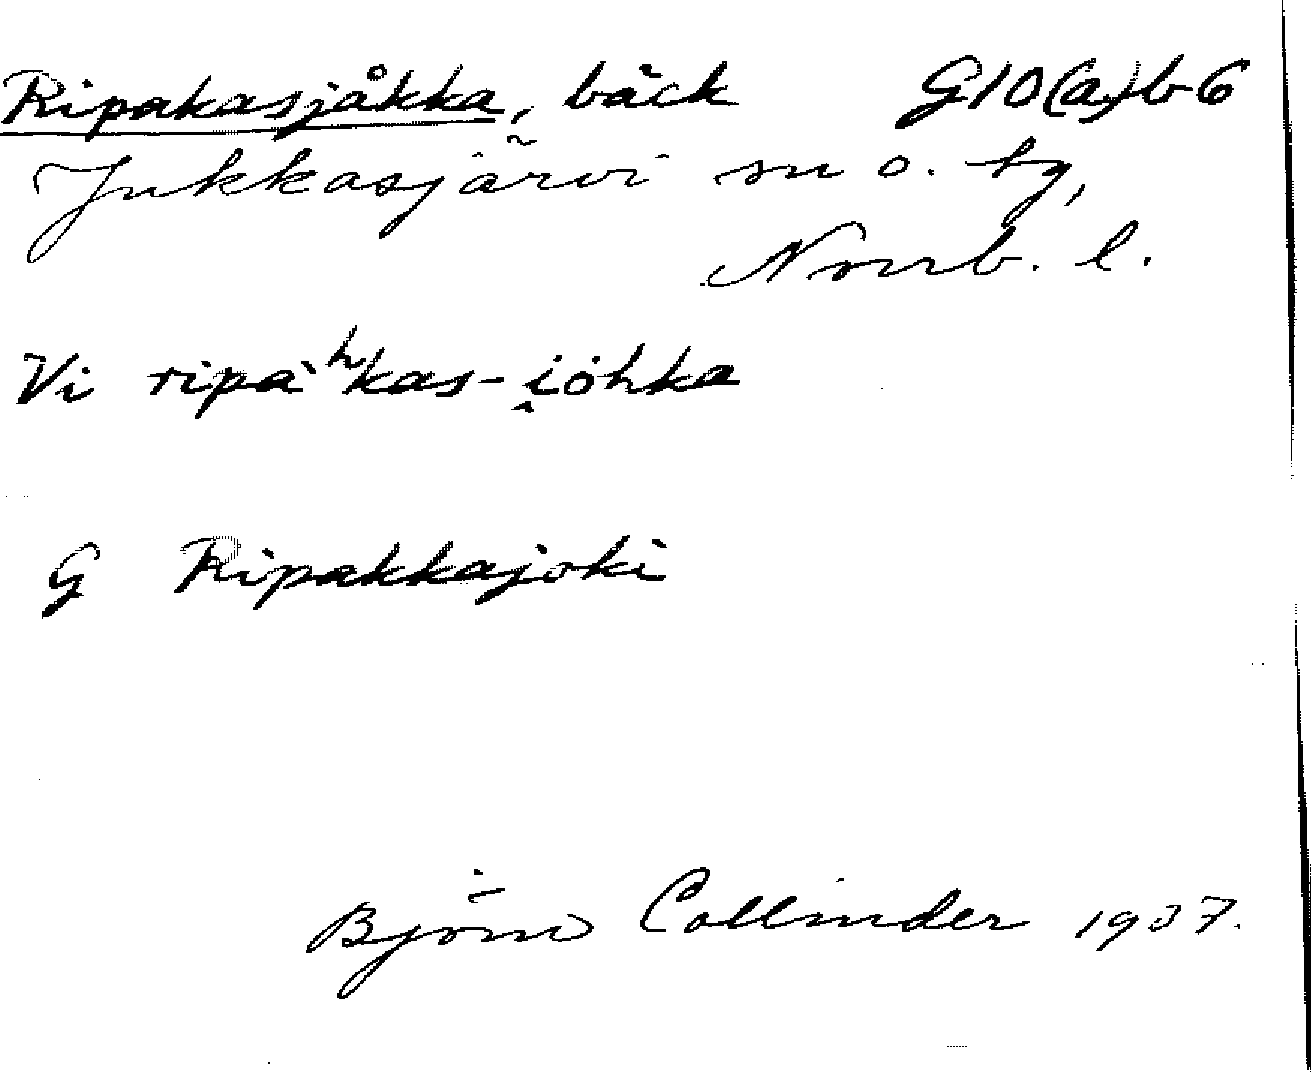 Ripakasjåkka, bäck G10(a)b6
Jukkasjärvi sn o. tg,
Norrb. l.
Vi ripàʰkas-i̭öhka
G Ripakkajoki
Björn Collinder 1937.